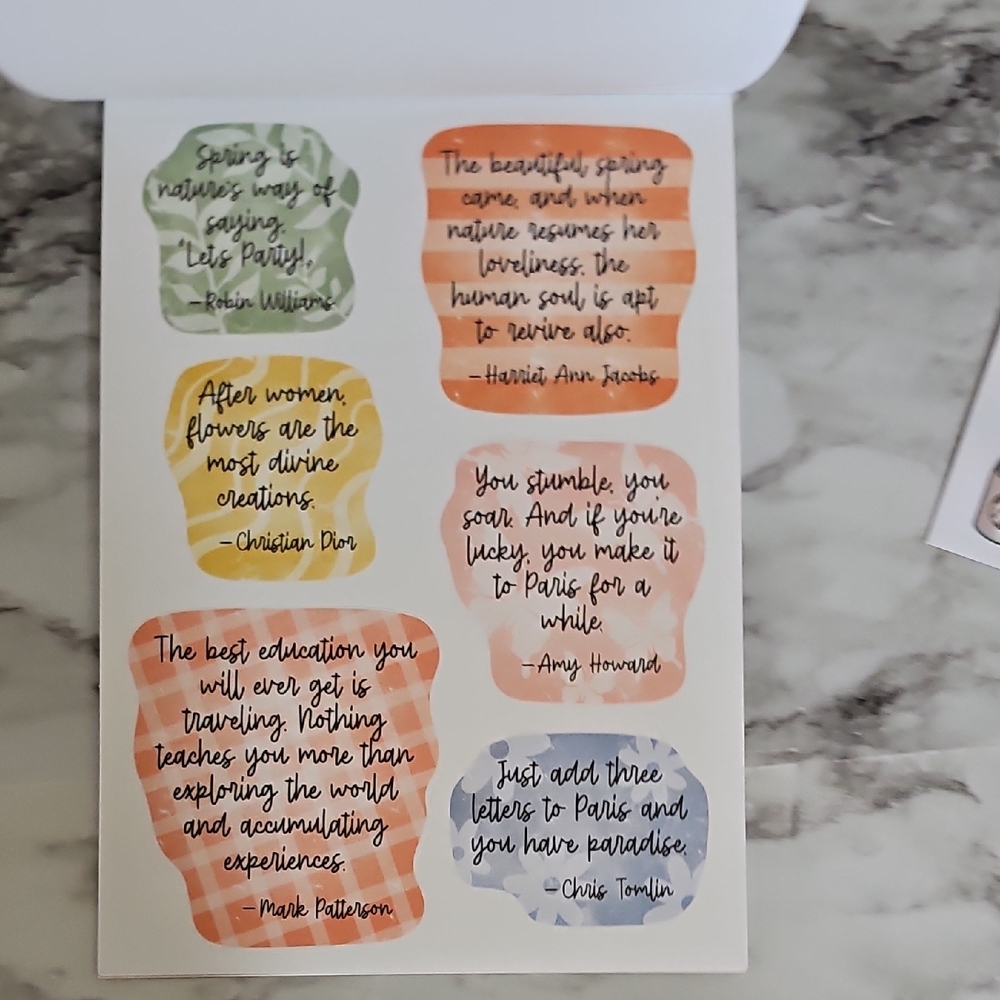 Spring is
nature's way of
saying,
'Let's Party!,
—Robin Williams
The beautiful spring
came, and when
nature resumes her
loveliness, the
human soul is apt
to revive also.
—Harriet Ann Jacobs
After women,
flowers are the
most divine
creations.
—Christian Dior
You stumble, you
soar. And if you're
lucky, you make it
to Paris for a
while.
—Amy Howard
The best education you
will ever get is
traveling. Nothing
teaches you more than
exploring the world
and accumulating
experiences.
—Mark Patterson
Just add three
letters to Paris and
you have paradise.
—Chris Tomlin